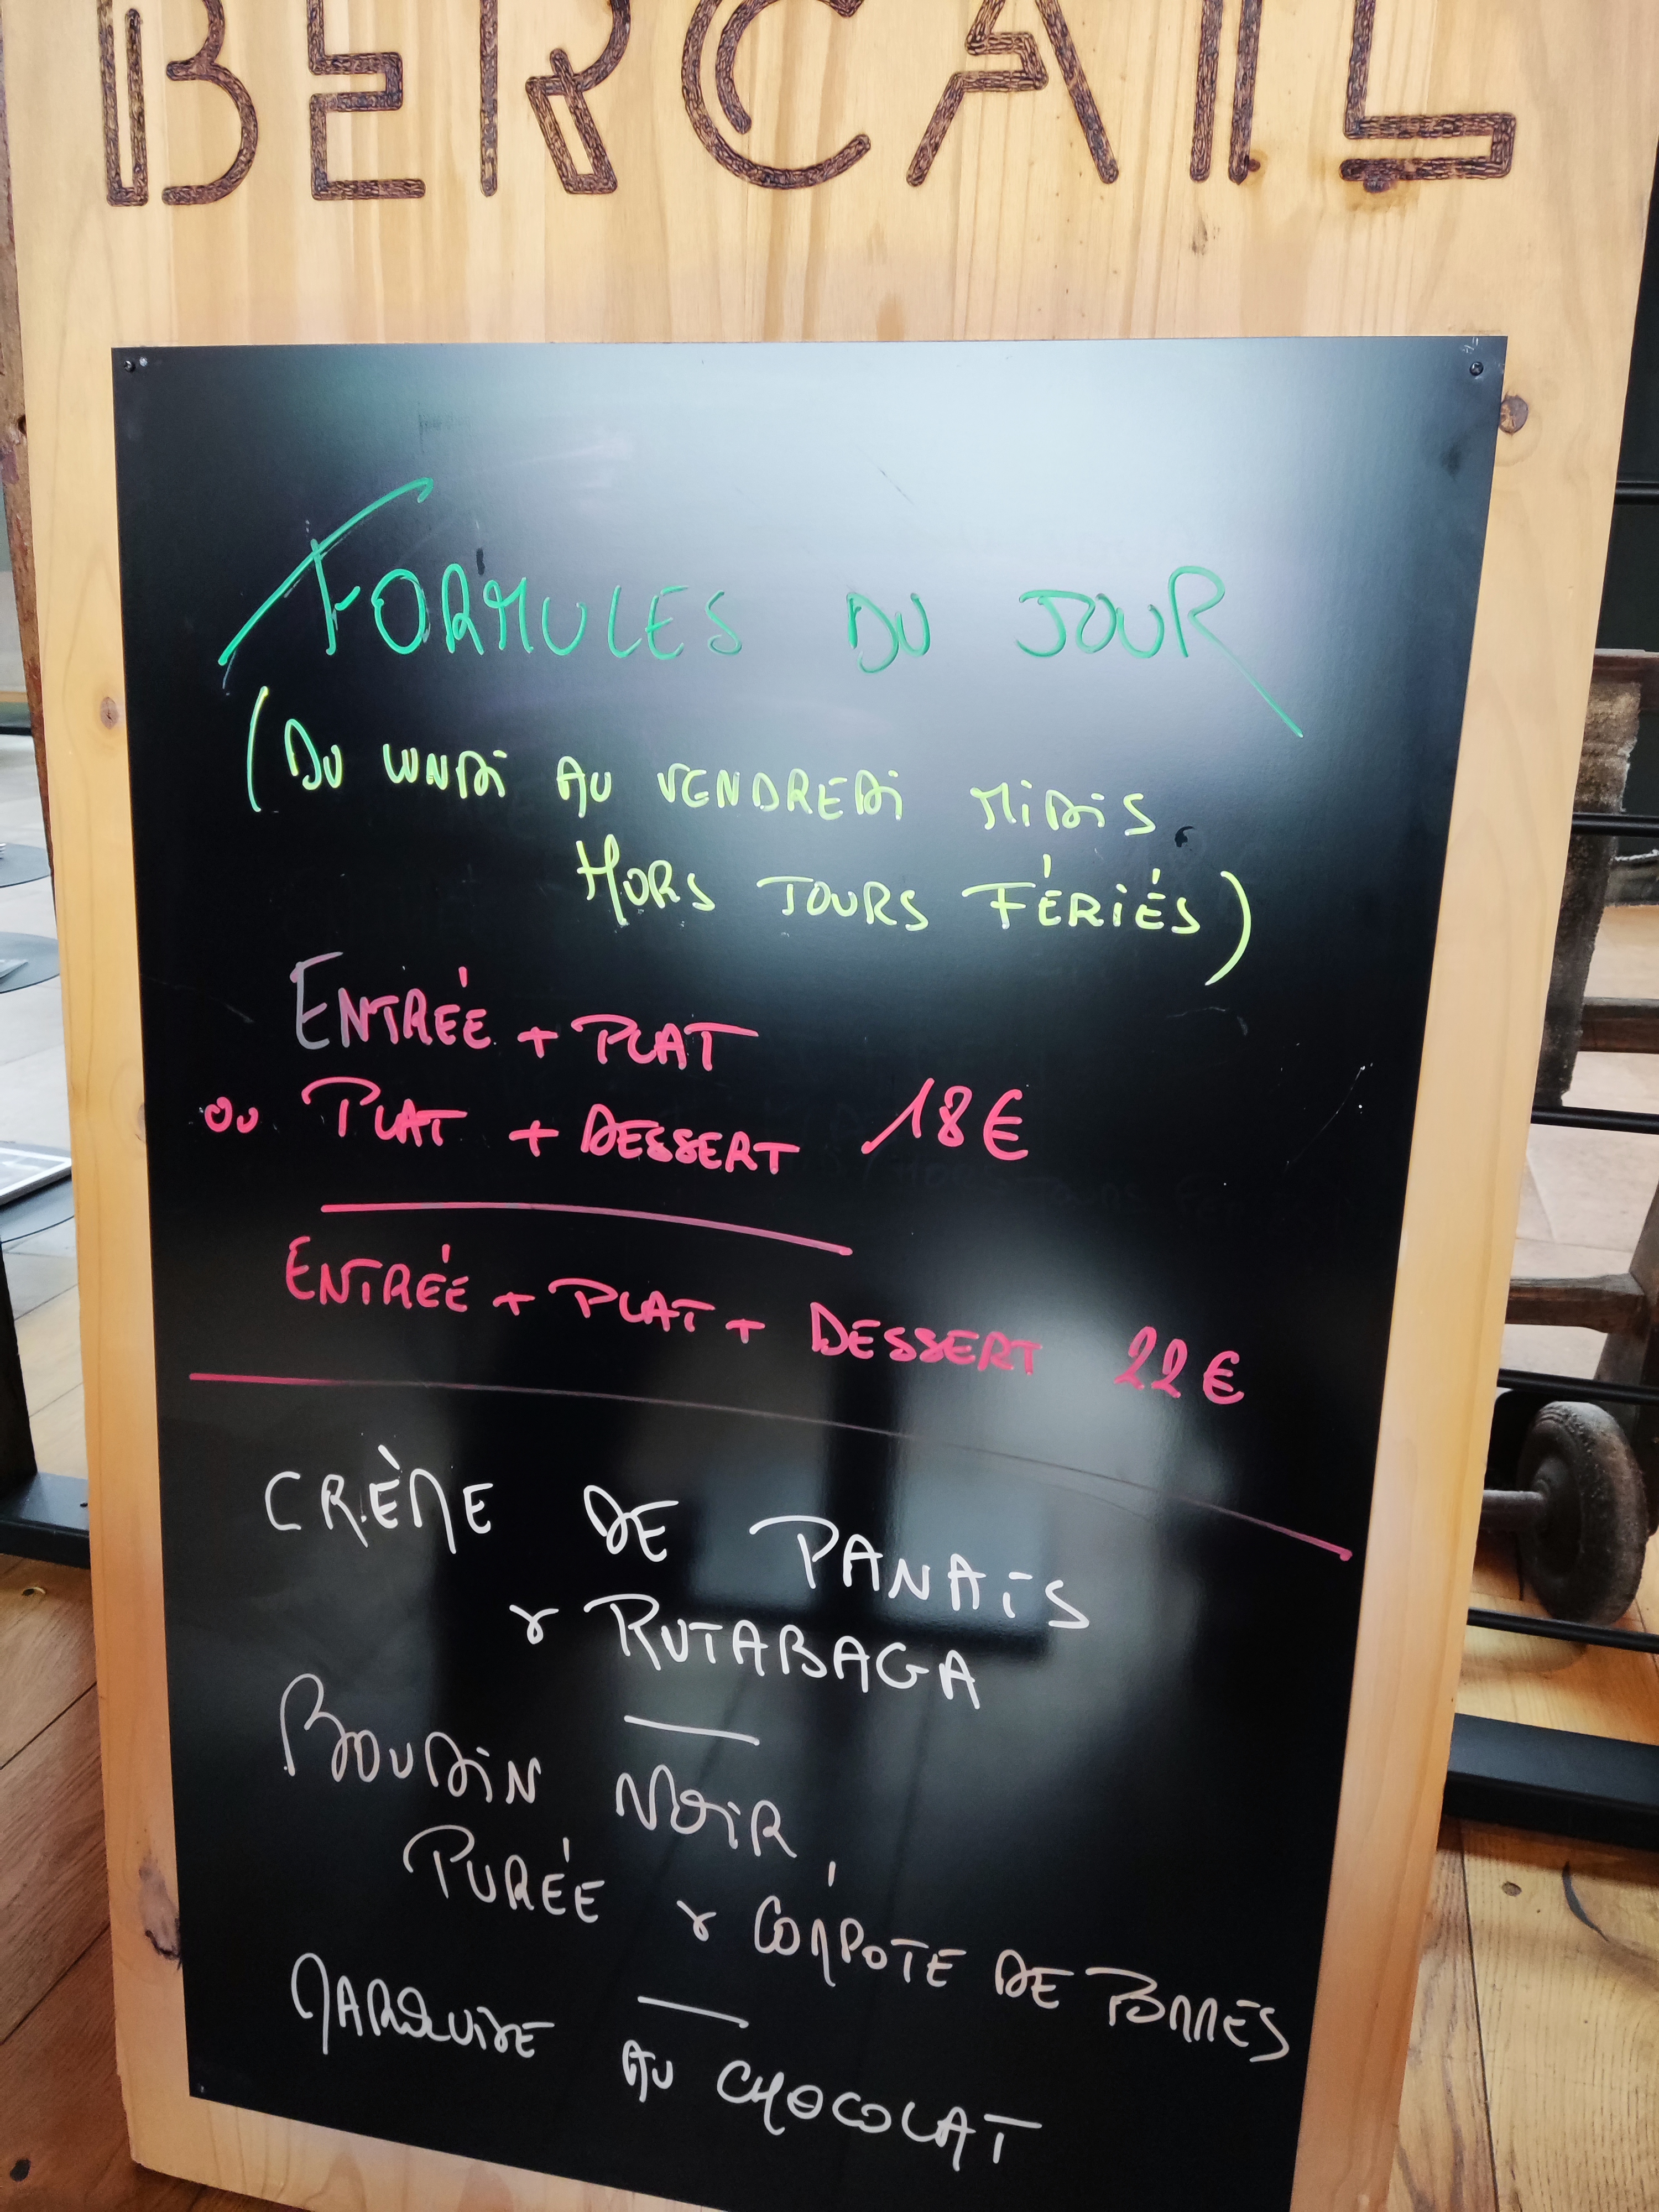 BERCAIL
FORMULES DU JOUR
(DU LUNDi AU VENDREDi MiDiS
HORS JOURS FÉRiÉS)
ENTRÉE + PLAT
ou PLAT + DESSERT 18€
ENTRÉE + PLAT + DESSERT 22€
CRÈME DE PANAiS
& RUTABAGA
BOUDiN NOiR,
PURÉE & COMPOTE DE POMMES
MARQUiSE AU CHOCOLAT